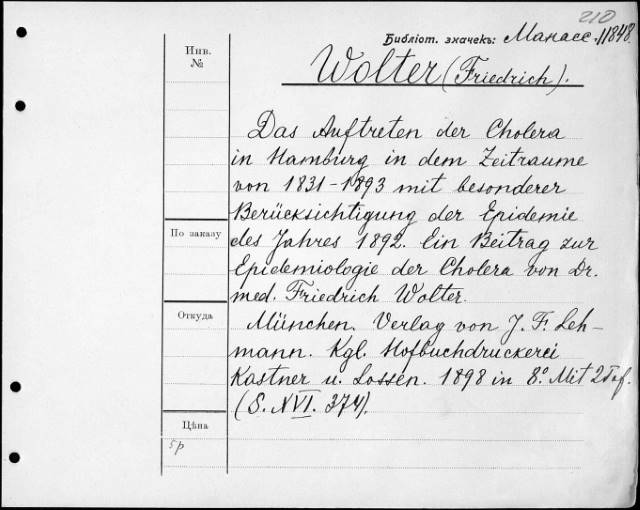 210
Библіот. значекъ: Манасс. 11848.
Инв. №
Wolter (Friedrich).
Das Auftreten der Cholera
in Hamburg in dem Zeitraume
von 1831-1893 mit besonderer
Berücksichtigung der Epidemie
По заказу
des Jahres 1892. Ein Beitrag zur
Epidemiologie der Cholera von Dr.
med. Friedrich Wolter.
Откуда
München. Verlag von J. F. Leh-
mann. Kgl. Hofbuchdruckerei
Kastner u. Lossen. 1898 in 8.° Mit 2 Taf.
(S. XVI. 374).
Цѣна
5р